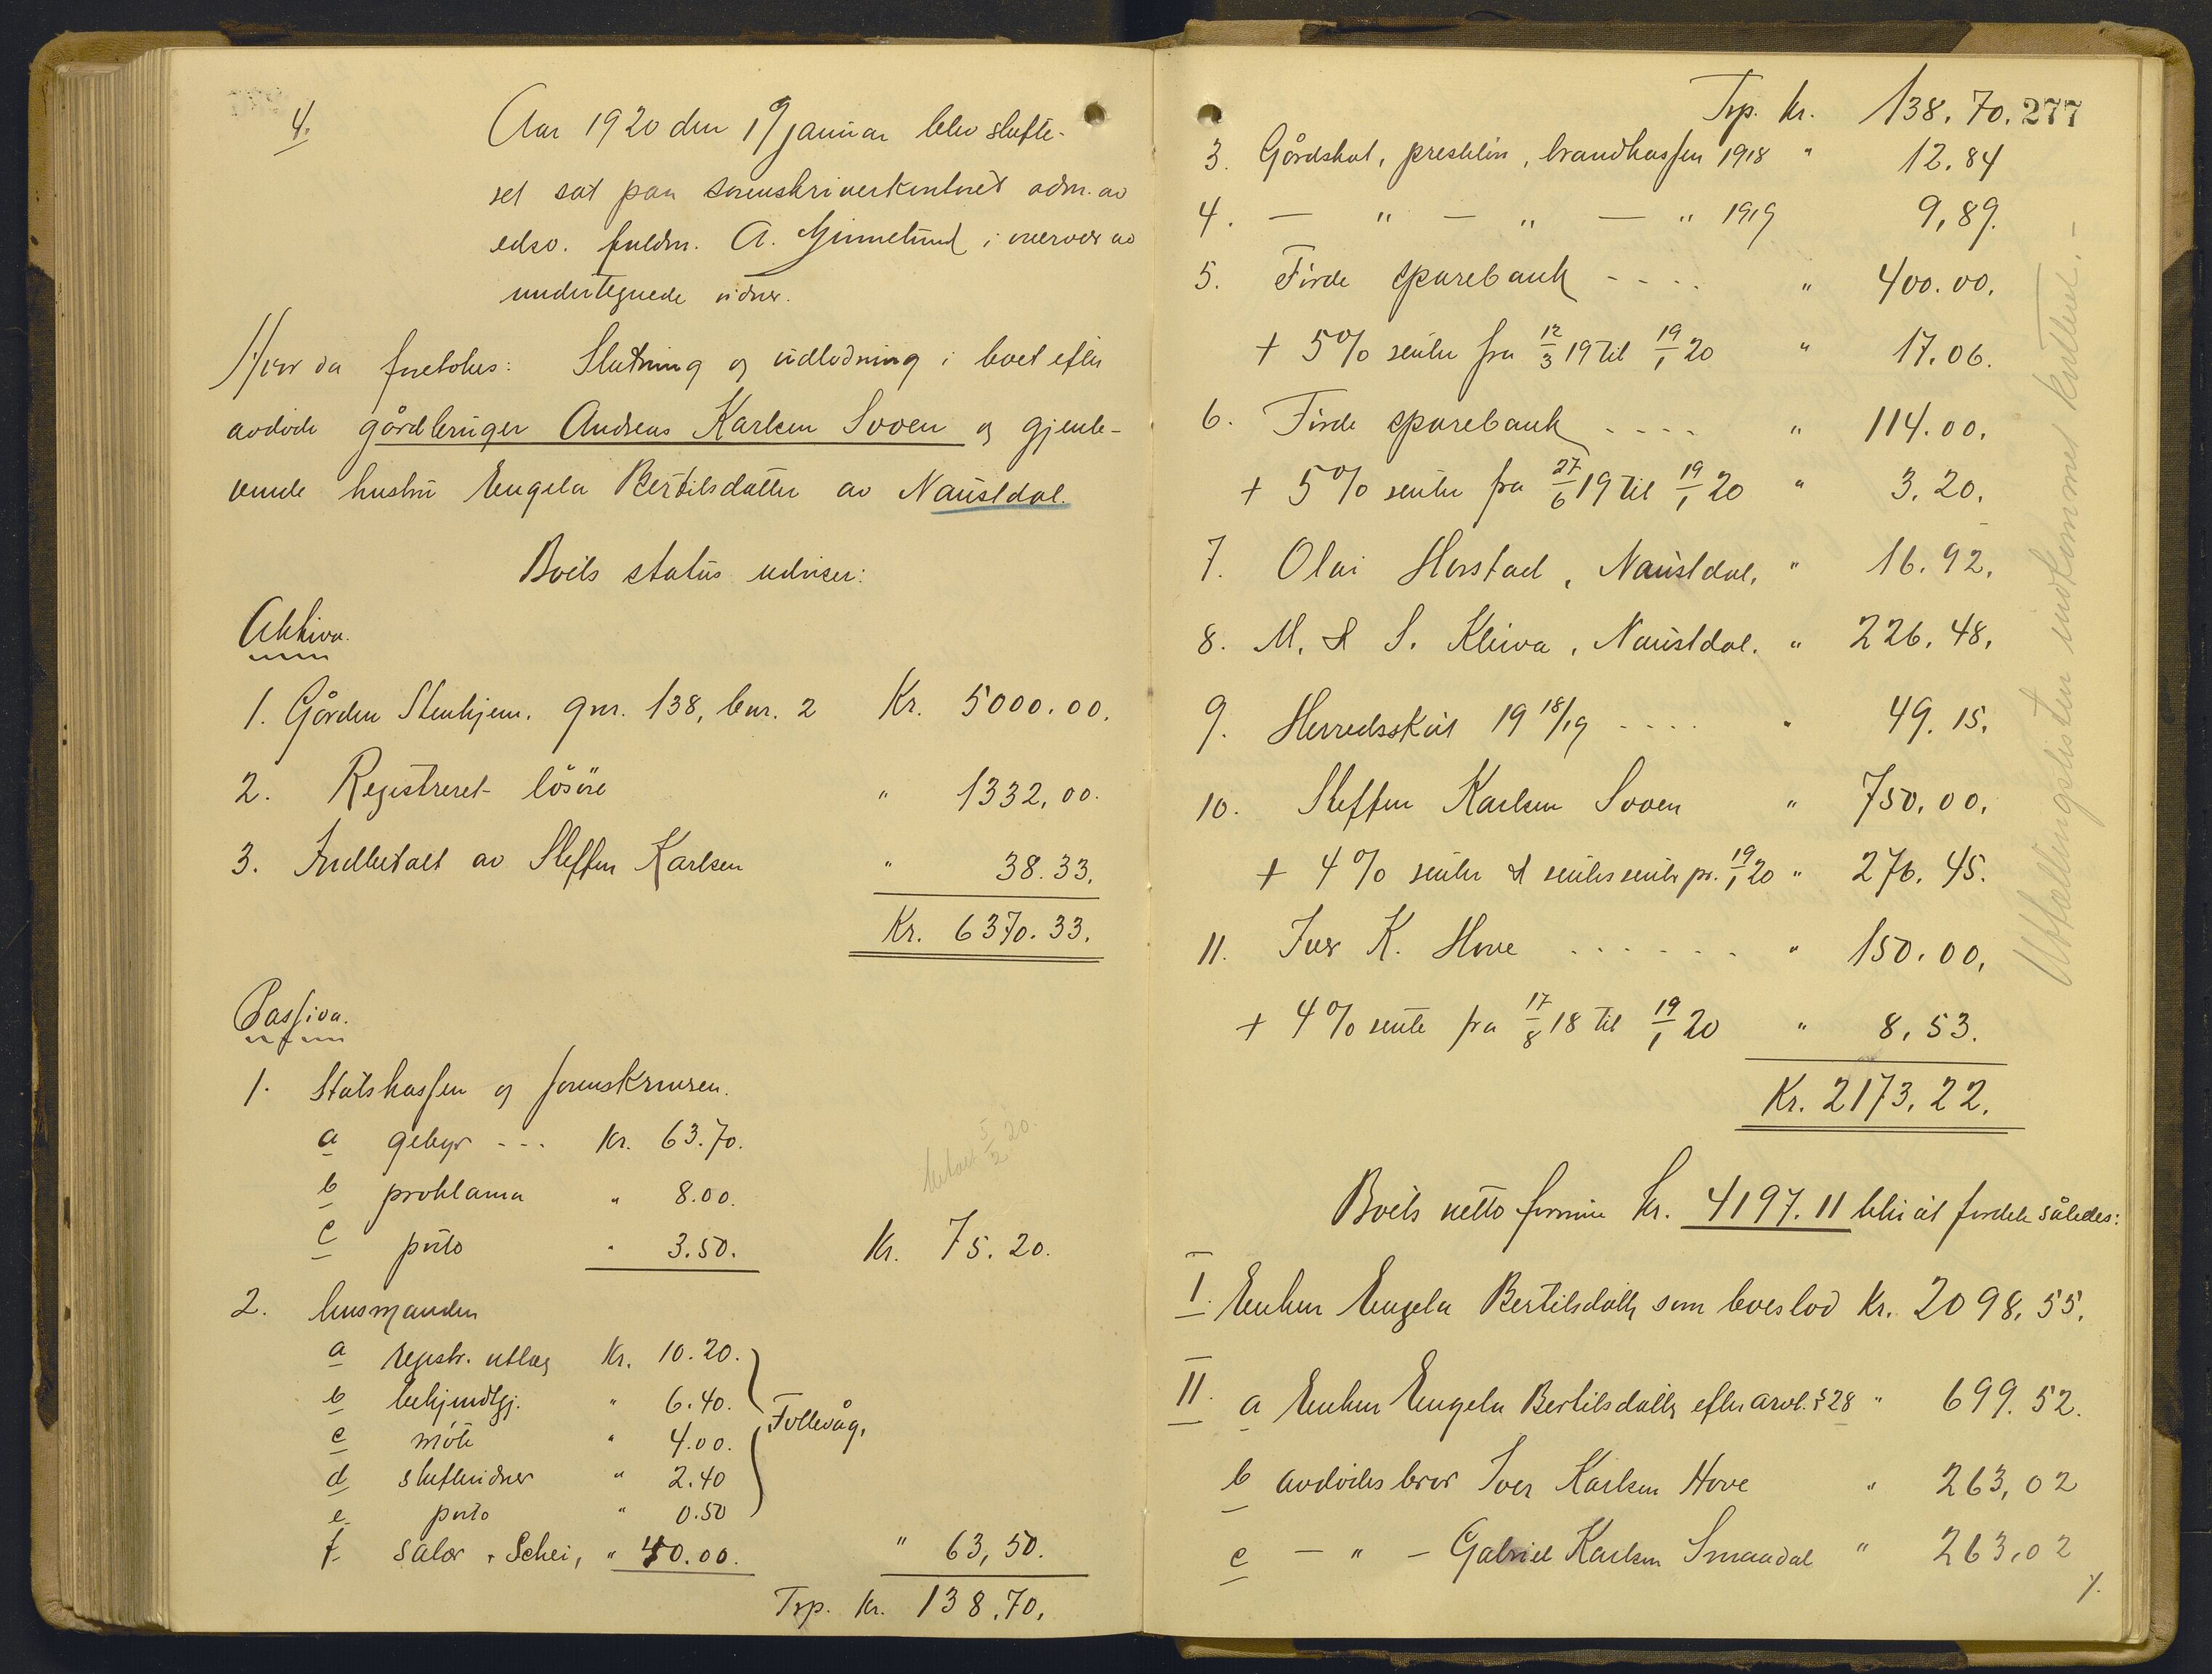 4.
Aar 1920 den 19 januar blev skifte-
ret sat paa sorenskriverkontoret adm. av
edsv. fuldm. A. Ginnelund i nærvær av
undertegnede vidner.
Hvor da foretokes: Slutning og utlodning i boet efter
avdøde gårdbruger Andreas Karlsen Soven og gjenle-
vende hustru Engela Bertilsdatter av Naustdal.
Boets status utviser:
Aktiva.
1. Gården Stenhjem. gnr. 138, bnr. 2 Kr. 5000.00.
2. Registreret løsøre " 1332,00.
3. Indbetalt av Steffen Karlsen " 38.33.
Kr. 6370.33.
Passiva.
1. Statskassen og sorenskriveren.
a gebyr --- Kr. 63.70.
b proklama " 8.00.
betalt 5/2 20.
c porto " 3.50. Kr. 75.20.
2. lensmanden
a registr. utlæg Kr. 10.20.
b bekjendtgj. " 6.40.
Follevåg,
c møte " 4.00.
d skiftevidner " 2.40
e porto " 0.50
f salær, Schei, " 40.00. " 63,50.
Trp. kr. 138.70.
Trp. kr. 138.70. 277
3. Gårdskat, presteløn, brandkassen 1918 " 12.84
4. — " — " — " 1919 9,89.
5. Førde sparebank - - - - " 400.00.
+ 5% renter fra 12/3 19 til 19/1 20 " 17.06.
6. Førde sparebank - - - - " 114.00.
+ 5% renter fra 27/6 19 til 19/1 20 " 3.20.
7. Olai Horstad, Naustdal, " 16.92.
8. M. & S. Kleiva, Naustdal. " 226.48.
9. Herredsskat 19 18/19 - - - - " 49.15.
10. Steffen Karlsen Soven " 750.00.
+ 4% renter & rentesrente pr. 19/1 20 " 276.45.
11. Iver K. Hove . . . . . . " 150.00.
+ 4% rente fra 17/8 18 til 19/1 20 " 8,53.
Kr. 2173.22.
Boets netto formue kr. 4197.11 blir at fordele således:
I. Enken Engela Bertilsdatter som boeslod Kr. 2098.55.
II. a Enken Engela Bertilsdatter efter arvel. § 28 " 699.52.
b avdødes bror Iver Karlsen Hove " 263,02
c — " — Gabriel Karlsen Smaadal " 263,02
%
Utfældingslisten indkommet kvittert. -